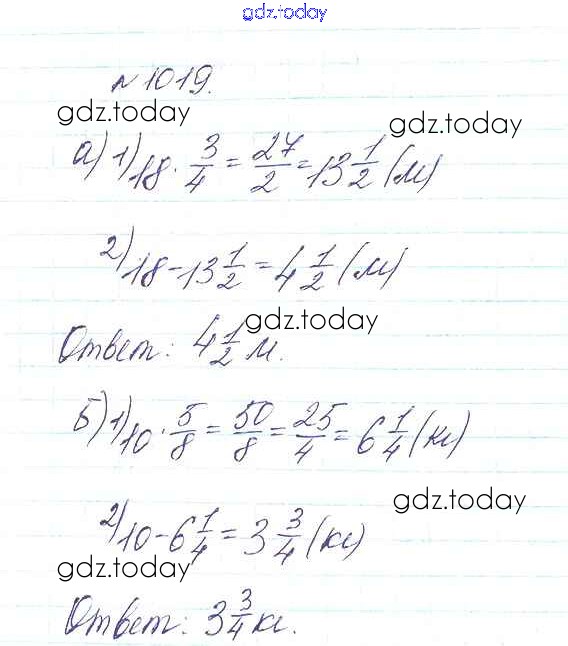 gdz.today
№ 1019.
gdz.today
gdz.today
а) 1) 18 · 3/4 = 27/2 = 13 1/2 (м)
2) 18 - 13 1/2 = 4 1/2 (м)
gdz.today
Ответ: 4 1/2 м.
Б) 1) 10 · 5/8 = 50/8 = 25/4 = 6 1/4 (кг)
gdz.today
2) 10 - 6 1/4 = 3 3/4 (кг)
gdz.today
Ответ: 3 3/4 кг.